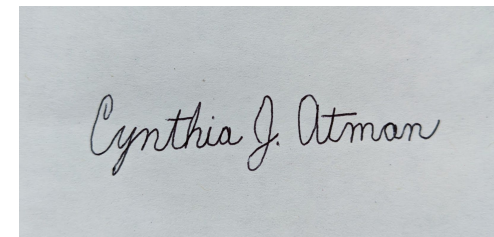 Cynthia J. Atman